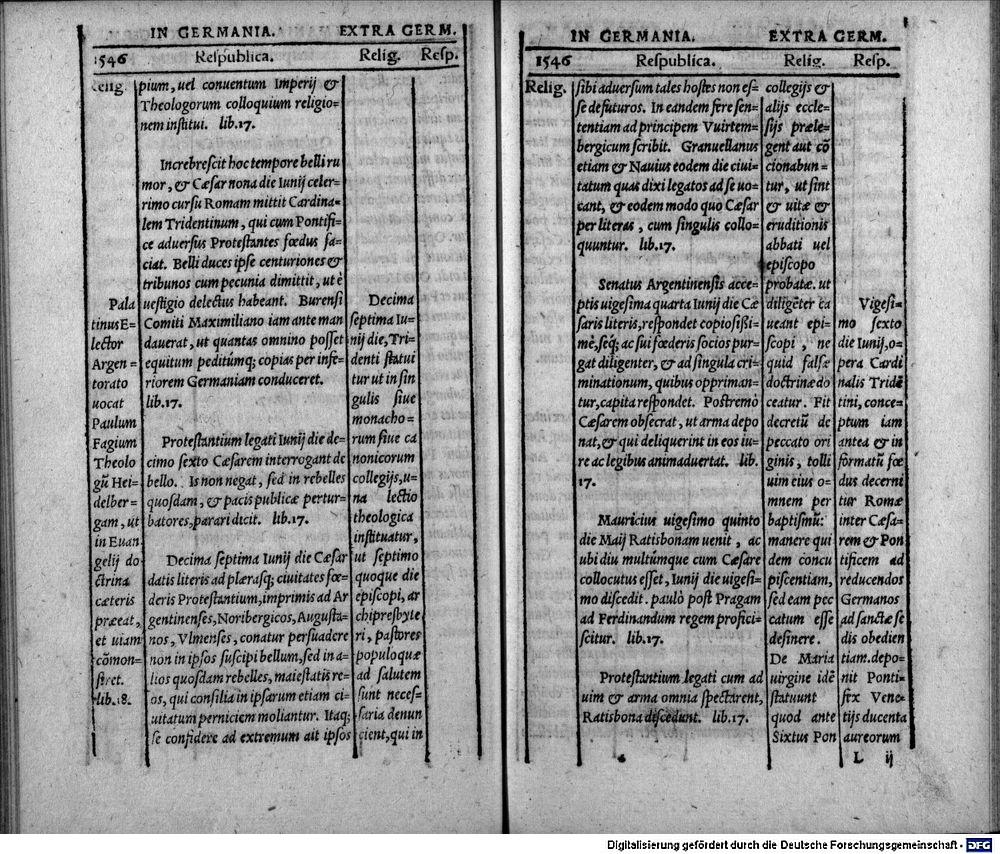 IN GERMANIA. EXTRA GERM.
1546 Respublica. Relig. Resp.
Relig.
Pala
tinus E-
lector
Argen=
torato
uocat
Paulum
Fagium
Theolo
gũ Hei-
delber-
gam, ut
in Euan
gelij do
ctrina
cæteris
præeat,
et uiam
cõmon-
stret.
lib.18.
pium, uel conuentum Imperij &
Theologorum colloquium religio=
nem institui. lib.17.
Increbrescit hoc tempore belli ru
mor, & Cæsar nona die Iunij celer-
rimo cursu Romam mittit Cardina-
lem Tridentinum, qui cum Pontifi-
ce aduersus Protestantes fœdus fa-
ciat. Belli duces ipse centuriones &
tribunos cum pecunia dimittit, ut è
uestigio delectus habeant. Burensi
Comiti Maximiliano iam ante man
dauerat, ut quantas omnino posset
equitum peditúmq; copias per infe-
riorem Germaniam conduceret.
lib.17.
Protestantium legati Iunij die de-
cimo sexto Cæsarem interrogant de
bello. Is non negat, sed in rebelles
quosdam, & pacis publicæ pertur-
batores, parari dicit. lib.17.
Decima septima Iunij die Cæsar
datis literis ad plærasq; ciuitates fœ-
deris Protestantium, imprimis ad Ar
gentinenses, Noribergicos, Augusta-
nos, Vlmenses, conatur persuadere
non in ipsos suscipi bellum, sed in a-
lios quosdam rebelles, maiestatis re-
os, qui consilia in ipsarum etiam ci-
uitatum perniciem moliantur. Itaq;
se confidere ad extremum ait ipsos
Decima
septima Iu-
nij die, Tri-
denti statui
tur ut in sin
gulis siue
monacho-
rum siue ca
nonicorum
collegijs, u-
na lectio
theologica
instituatur,
ut septimo
quoque die
episcopi, ar
chipresbyte
ri, pastores
populo quæ
ad salutem
sunt neces-
saria denun
cient, qui in
IN GERMANIA. EXTRA GERM.
1546 Respublica. Relig. Resp.
Relig.
sibi aduersum tales hostes non es-
se defuturos. In eandem fere sen-
tentiam ad principem Vuirtem-
bergicum scribit. Granuellanus
etiam & Nauius eodem die ciui-
tatum quas dixi legatos ad se uo-
cant, & eodem modo quo Cæsar
per literas, cum singulis collo-
quuntur. lib.17.
Senatus Argentinensis acce-
ptis uigesima quarta Iunij die Cæ
saris literis, respondet copiosissi-
mè, seq; ac sui fœderis socios pur-
gat diligenter, & ad singula cri-
minationum, quibus oppriman-
tur, capita respondet. Postremò
Cæsarem obsecrat, ut arma depo
nat, & qui deliquerint in eos iu-
re ac legibus animaduertat. lib.
17.
Mauricius uigesimo quinto
die Maij Ratisbonam uenit, ac
ubi diu multúmque cum Cæsare
collocutus esset, Iunij die uigesi-
mo discedit. paulò post Pragam
ad Ferdinandum regem profici-
scitur. lib.17.
Protestantium legati cum ad
uim & arma omnia spectarent,
Ratisbona discedunt. lib.17.
collegijs &
alijs eccle-
sijs præle-
gent aut cõ
cionabun-
tur, ut sint
& uitæ &
eruditionis
abbati uel
episcopo
probatæ. ut
diligẽter ca
ueant epi-
scopi, ne
quid falsæ
doctrinæ do
ceatur. Fit
decretũ de
peccato ori
ginis, tolli
uim eius o-
mnem per
baptismũ:
manere qui
dem concu
piscentiam,
sed eam pec
catum esse
desinere.
De Maria
uirgine idẽ
statuunt
quod ante
Sixtus Pon
Vigesi-
mo sexto
die Iunij, o-
pera Cardi
nalis Tridẽ
tini, conce-
ptum iam
antea & in
formatũ fœ
dus decerni
tur Romæ
inter Cæsa-
rem & Pon
tificem ad
reducendos
Germanos
ad sanctæ se
dis obedien
tiam. depo-
nit Ponti-
fix Vene-
tijs ducenta
aureorum
L ij
Digitalisierung gefördert durch die Deutsche Forschungsgemeinschaft - DFG